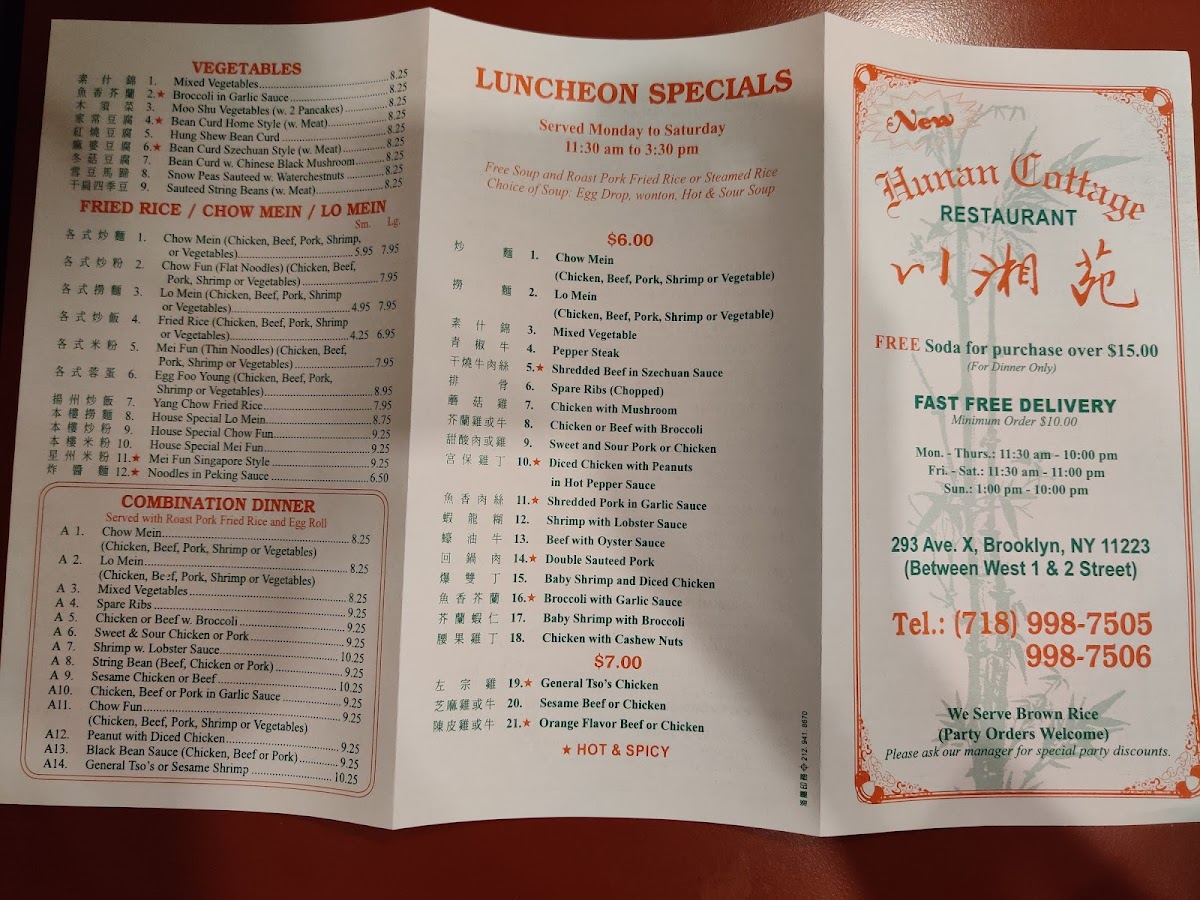 VEGETABLES
素什錦 1. Mixed Vegetables 8.25
魚香芥蘭 2.★ Broccoli in Garlic Sauce 8.25
木須菜 3. Moo Shu Vegetables (w. 2 Pancakes) 8.25
家常豆腐 4.★ Bean Curd Home Style (w. Meat) 8.25
紅燒豆腐 5. Hung Shew Bean Curd 8.25
麻婆豆腐 6.★ Bean Curd Szechuan Style (w. Meat) 8.25
冬菇豆腐 7. Bean Curd w. Chinese Black Mushroom 8.25
雪豆馬蹄 8. Snow Peas Sauteed w. Waterchestnuts 8.25
干扁四季豆 9. Sauteed String Beans (w. Meat) 8.25
FRIED RICE / CHOW MEIN / LO MEIN
Sm. Lg.
各式炒麵 1. Chow Mein (Chicken, Beef, Pork, Shrimp,
or Vegetables) 5.95 7.95
各式炒粉 2. Chow Fun (Flat Noodles) (Chicken, Beef,
Pork, Shrimp or Vegetables) 7.95
各式撈麵 3. Lo Mein (Chicken, Beef, Pork, Shrimp
or Vegetables) 4.95 7.95
各式炒飯 4. Fried Rice (Chicken, Beef, Pork, Shrimp
or Vegetables) 4.25 6.95
各式米粉 5. Mei Fun (Thin Noodles) (Chicken, Beef,
Pork, Shrimp or Vegetables) 7.95
各式蓉蛋 6. Egg Foo Young (Chicken, Beef, Pork,
Shrimp or Vegetables) 8.95
揚州炒飯 7. Yang Chow Fried Rice 7.95
本樓撈麵 8. House Special Lo Mein 8.75
本樓炒粉 9. House Special Chow Fun 9.25
本樓米粉 10. House Special Mei Fun 9.25
星州米粉 11.★ Mei Fun Singapore Style 9.25
炸醬麵 12.★ Noodles in Peking Sauce 6.50
COMBINATION DINNER
Served with Roast Pork Fried Rice and Egg Roll
A 1. Chow Mein 8.25
(Chicken, Beef, Pork, Shrimp or Vegetables)
A 2. Lo Mein 8.25
(Chicken, Beef, Pork, Shrimp or Vegetables)
A 3. Mixed Vegetables 8.25
A 4. Spare Ribs 9.25
A 5. Chicken or Beef w. Broccoli 9.25
A 6. Sweet & Sour Chicken or Pork 9.25
A 7. Shrimp w. Lobster Sauce 10.25
A 8. String Bean (Beef, Chicken or Pork) 9.25
A 9. Sesame Chicken or Beef 10.25
A10. Chicken, Beef or Pork in Garlic Sauce 9.25
A11. Chow Fun 9.25
(Chicken, Beef, Pork, Shrimp or Vegetables)
A12. Peanut with Diced Chicken 9.25
A13. Black Bean Sauce (Chicken, Beef or Pork) 9.25
A14. General Tso's or Sesame Shrimp 10.25
LUNCHEON SPECIALS
Served Monday to Saturday
11:30 am to 3:30 pm
Free Soup and Roast Pork Fried Rice or Steamed Rice
Choice of Soup: Egg Drop, wonton, Hot & Sour Soup
$6.00
炒麵 1. Chow Mein
(Chicken, Beef, Pork, Shrimp or Vegetable)
撈麵 2. Lo Mein
(Chicken, Beef, Pork, Shrimp or Vegetable)
素什錦 3. Mixed Vegetable
青椒牛 4. Pepper Steak
干燒牛肉絲 5.★ Shredded Beef in Szechuan Sauce
排骨 6. Spare Ribs (Chopped)
蘑菇雞 7. Chicken with Mushroom
芥蘭雞或牛 8. Chicken or Beef with Broccoli
甜酸肉或雞 9. Sweet and Sour Pork or Chicken
宮保雞丁 10.★ Diced Chicken with Peanuts
in Hot Pepper Sauce
魚香肉絲 11.★ Shredded Pork in Garlic Sauce
蝦龍糊 12. Shrimp with Lobster Sauce
蠔油牛 13. Beef with Oyster Sauce
回鍋肉 14.★ Double Sauteed Pork
爆雙丁 15. Baby Shrimp and Diced Chicken
魚香芥蘭 16.★ Broccoli with Garlic Sauce
芥蘭蝦仁 17. Baby Shrimp with Broccoli
腰果雞丁 18. Chicken with Cashew Nuts
$7.00
左宗雞 19.★ General Tso's Chicken
芝麻雞或牛 20. Sesame Beef or Chicken
陳皮雞或牛 21.★ Orange Flavor Beef or Chicken
★ HOT & SPICY
212. 941. 8670
New
Hunan Cottage
RESTAURANT
川湘苑
FREE Soda for purchase over $15.00
(For Dinner Only)
FAST FREE DELIVERY
Minimum Order $10.00
Mon. - Thurs.: 11:30 am - 10:00 pm
Fri. - Sat.: 11:30 am - 11:00 pm
Sun.: 1:00 pm - 10:00 pm
293 Ave. X, Brooklyn, NY 11223
(Between West 1 & 2 Street)
Tel.: (718) 998-7505
998-7506
We Serve Brown Rice
(Party Orders Welcome)
Please ask our manager for special party discounts.